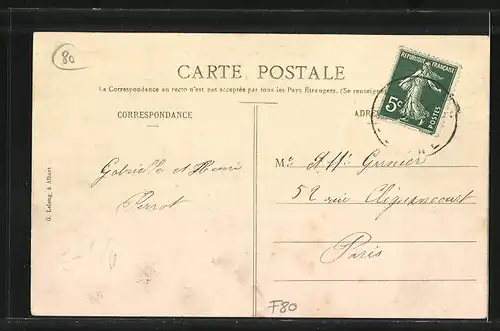 80
CARTE POSTALE
La Correspondance au recto n'est pas acceptée par tous les Pays Étrangers. (Se renseigner
CORRESPONDANCE
ADRE
REPUBLIQUE FRANÇAISE
5c
POSTES
Gabrielle et Henri
Perrot
Grenier
52 rue Clignancourt
Paris
G. Lelong, à Albert
F80